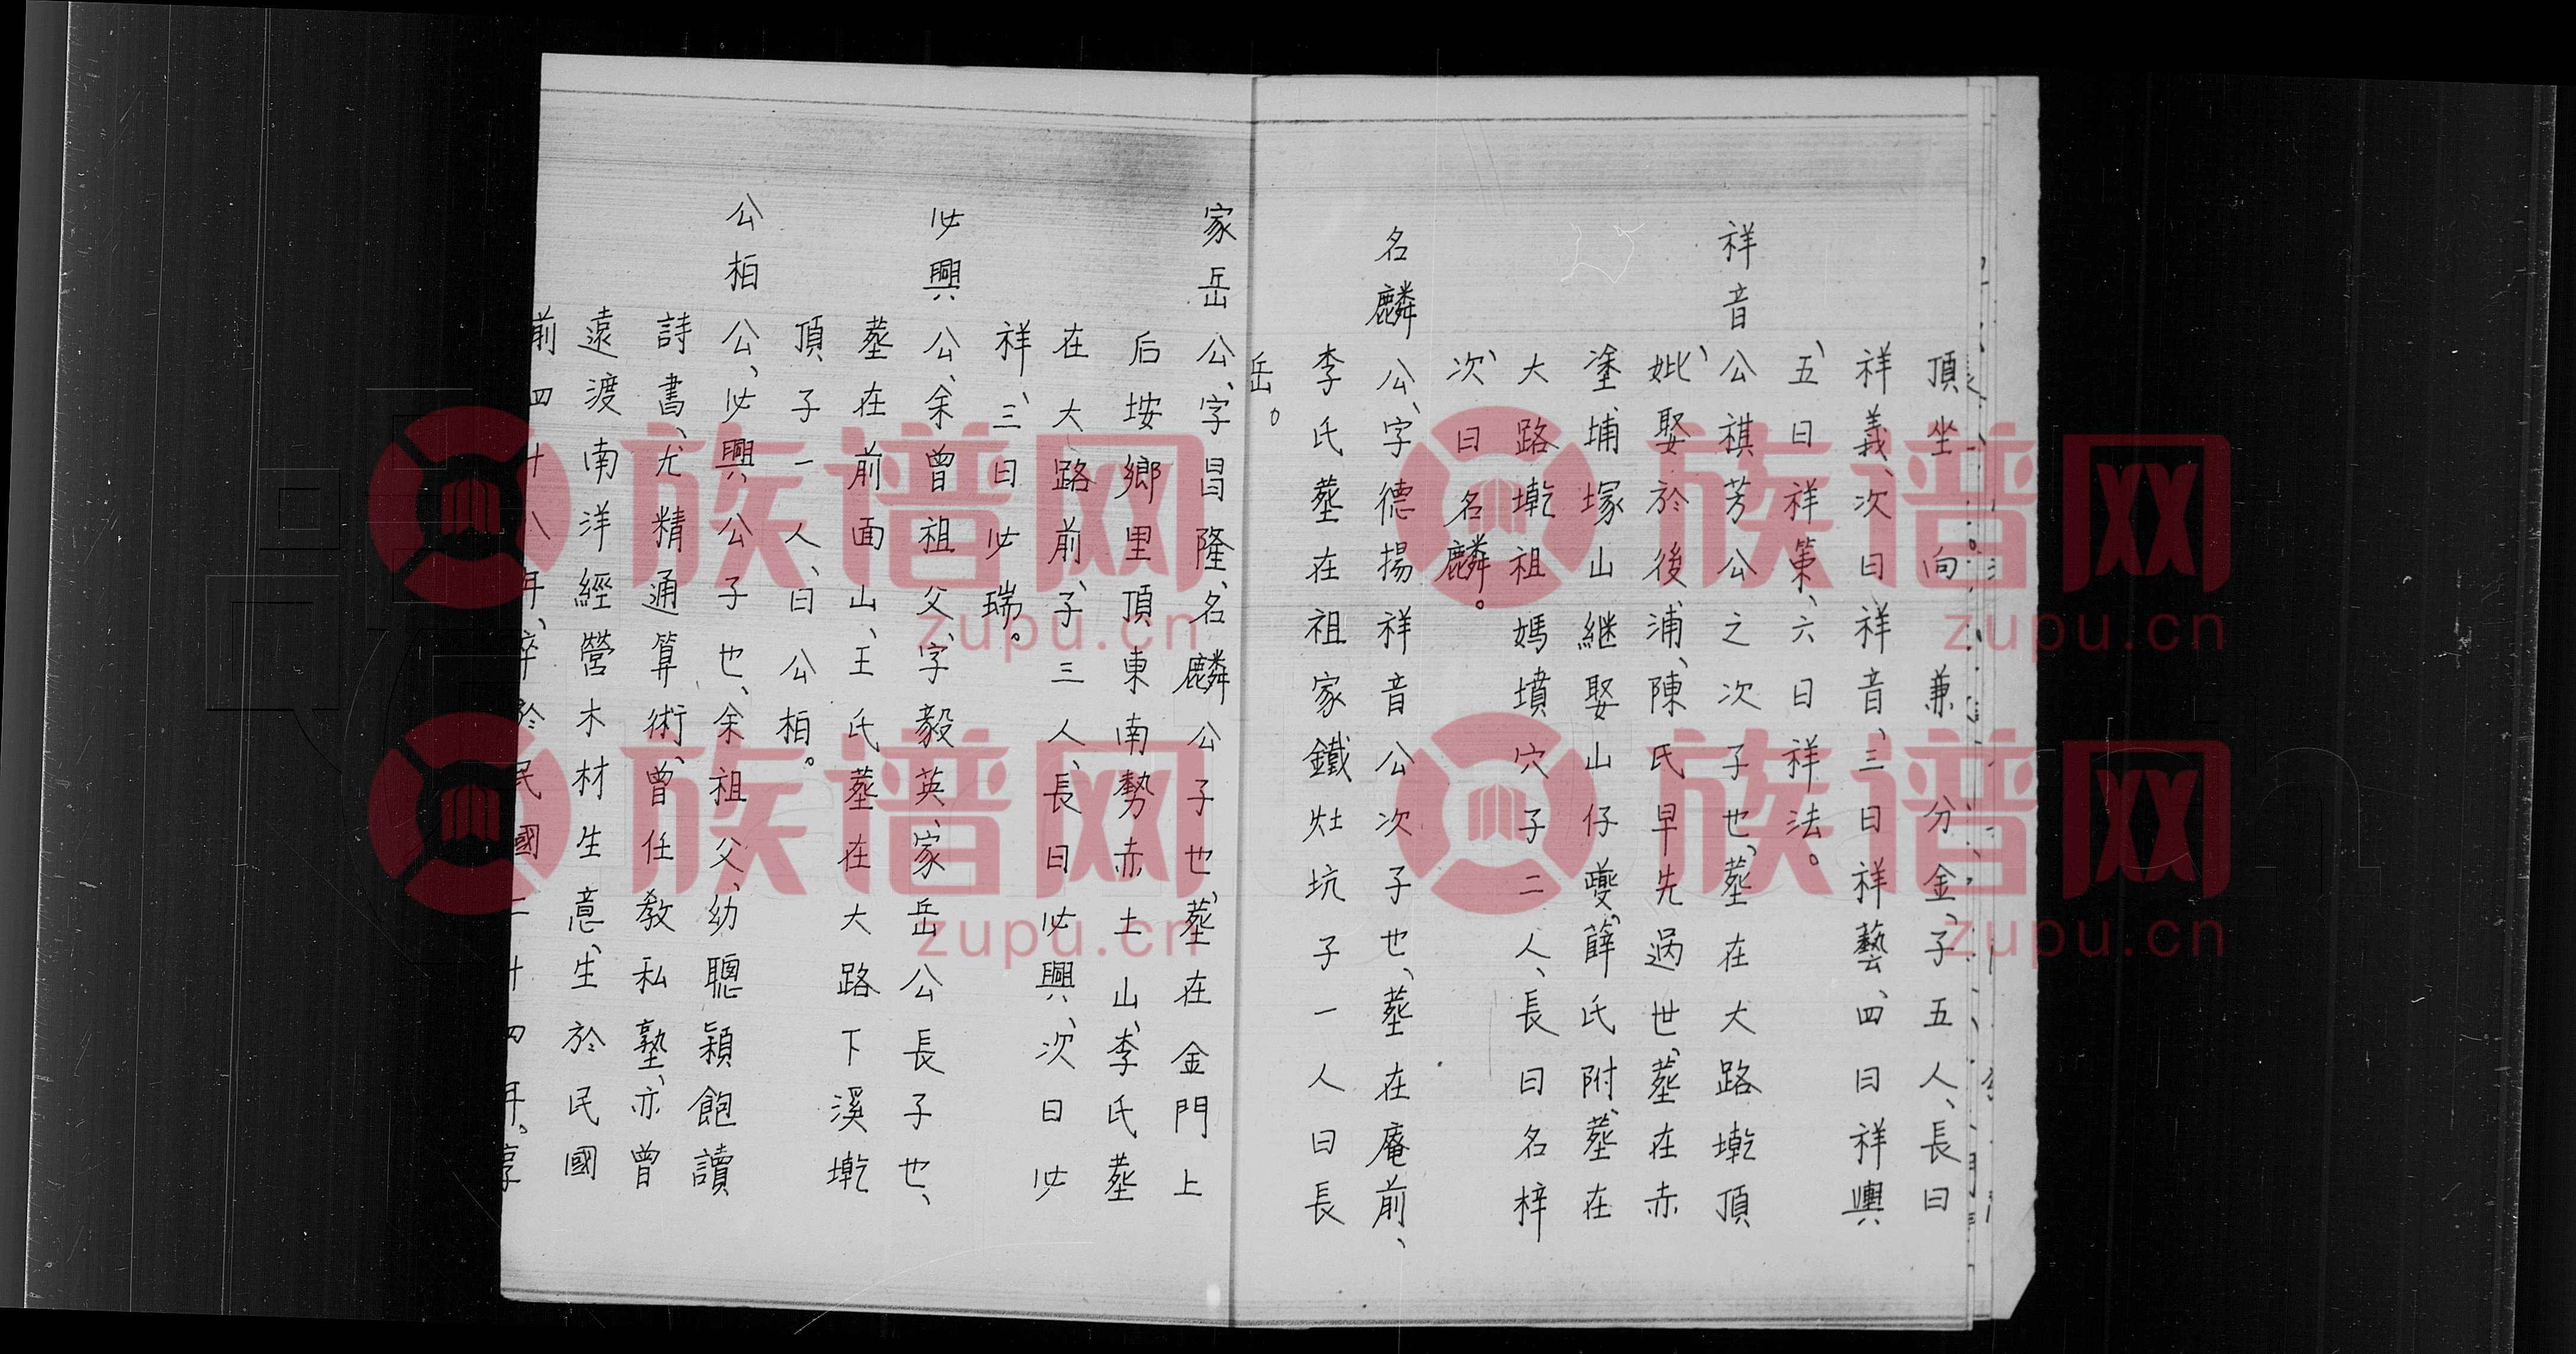 頂坐　向　兼　分金、子五人、長曰
祥義、次曰祥音、三曰祥藝、四曰祥輿
五、曰祥第、六曰祥法。
祥音公祺芳公之次子也、塟在大路墘頂
妣、娶於後浦、陳氏早先過世、塟在赤
塗埔塚山継娶山仔薛氏附塟在
大路墘祖媽墳穴子二人、長曰名梓
次、曰名麟。
名麟公、字德揚祥音公次子也、塟在庵前、
李氏塟在祖家鐵灶坑子一人曰長
岳。
家岳公、字昌隆、名麟公子也、塟在金門上
后垵鄉里頂東南勢赤土山、李氏塟
在大路前、子三人、長曰必興、次曰必
祥、三曰必瑞。
必興公、余曾祖父、字毅英、家岳公長子也、
塟在前面山、王氏塟在大路下溪墘
頂子一人、曰公柏。
公柏公、必興公子也、余祖父、幼聰穎飽讀
詩書、尤精通算術、曾任教私塾、亦曾
遠渡南洋經營木材生意、生於民國
前四十八年、卒於民國二十四年。享
族谱网
zupu.cn
族谱网
zupu.cn
族谱网
zupu.cn
族谱网
zupu.cn